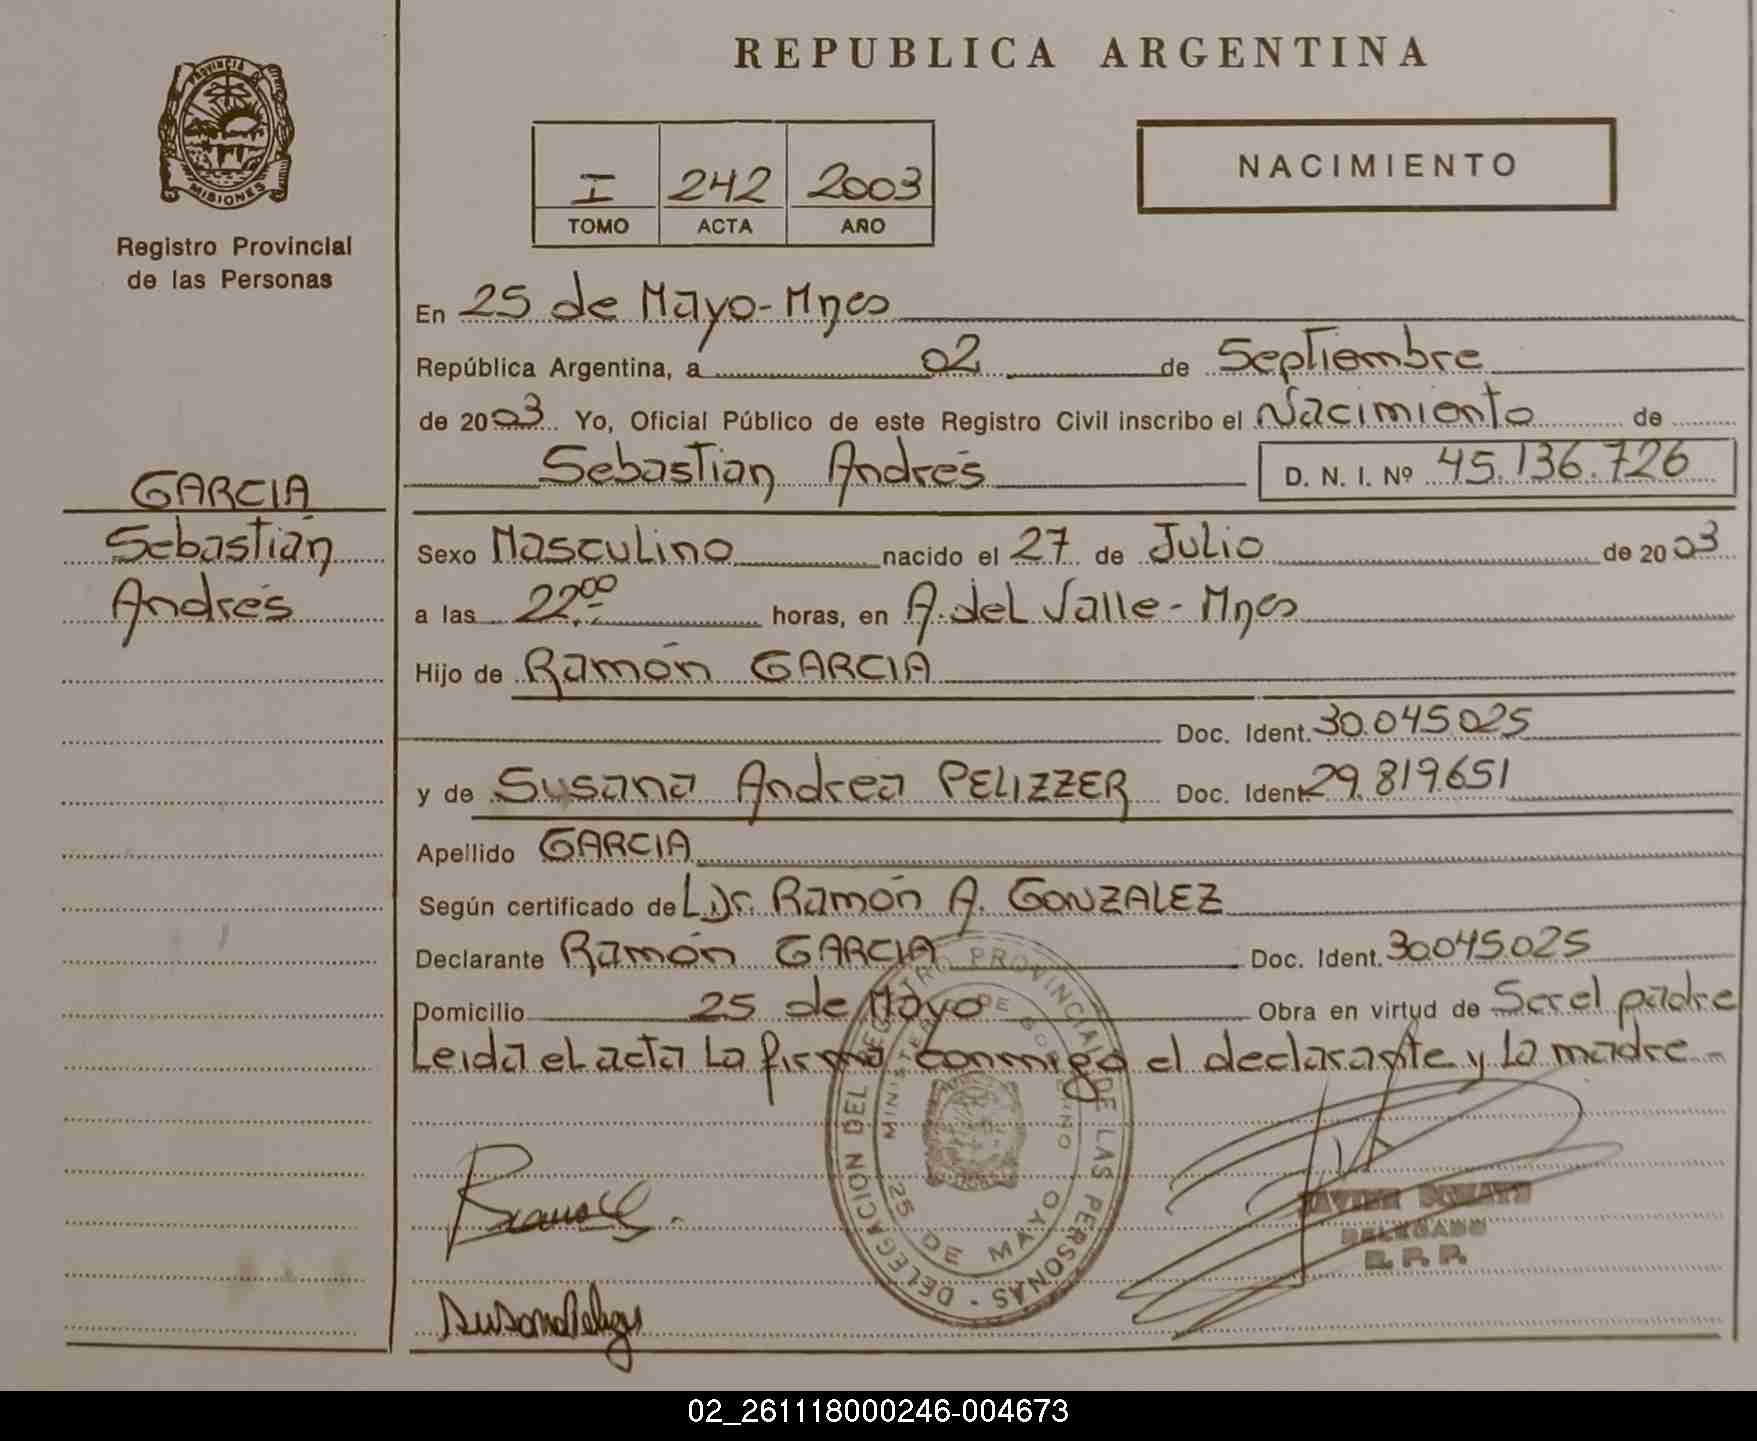 REPUBLICA ARGENTINA
PROVINCIA DE
MISIONES
Registro Provincial
de las Personas
I 242 2003
TOMO ACTA AÑO
NACIMIENTO
En 25 de Mayo-Mnes
República Argentina, a 02 de Septiembre
de 2003 Yo, Oficial Público de este Registro Civil inscribo el Nacimiento de
Sebastian Andrés D. N. I. Nº 45.136.726
GARCIA
Sebastián
Andrés
Sexo Masculino nacido el 27 de Julio de 2003
a las 22.00 horas, en A. del Valle - Mnes
Hijo de Ramón GARCIA
Doc. Ident. 30.045.025
y de Susana Andrea PELIZZER Doc. Ident. 29.819.651
Apellido GARCIA
Según certificado de L. Dr. Ramón A. GONZALEZ
Declarante Ramón GARCIA Doc. Ident. 30.045.025
Domicilio 25 de Mayo Obra en virtud de Ser el padre
Leida el acta la firma conmigo el declarante y la madre
DELEGACION DEL REGISTRO PROVINCIAL DE LAS PERSONAS -
MINISTERIO DE GOBIERNO
25 DE MAYO
JAVIER
DELEGADO
R. P. P.
02_261118000246-004673